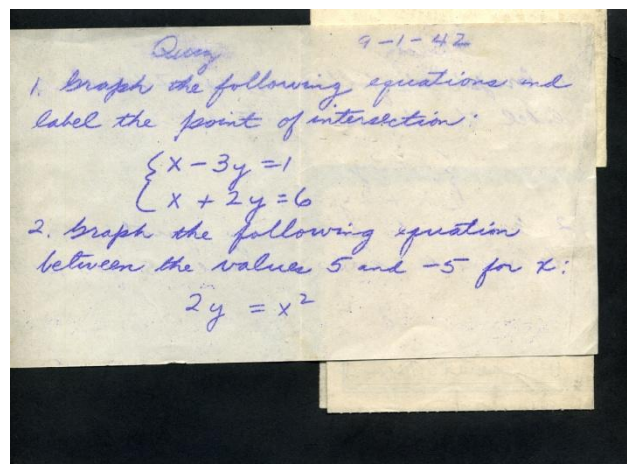 Quiz 9-1-42
1. Graph the following equations and
label the point of intersection:
{ x - 3y = 1
x + 2y = 6
2. Graph the following equation
between the values 5 and -5 for x:
2y = x²